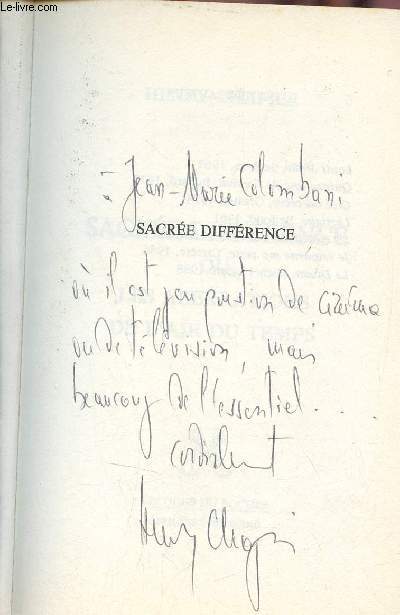 © Le-livre.com
à Jean-Marie Colombani
SACRÉE DIFFÉRENCE
où il est peu question de cinéma
ou de télévision, mais
beaucoup de l'essentiel...
cordialement
Henry Chapier